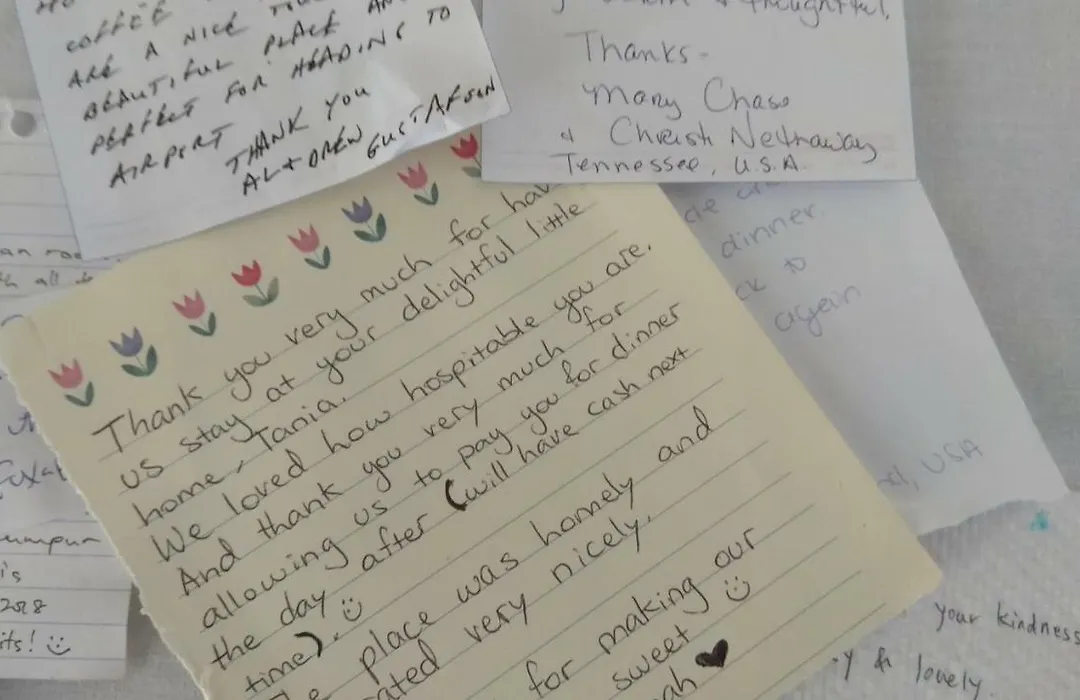 COFFEE
ARE A NICE
BEAUTIFUL PLACE AND
PERFECT FOR HEADING TO
AIRPORT
THANK YOU
AL + DREW GUSTAFSON
& thoughtful,
Thanks -
Mary Chase
& Christi Nethaway
Tennessee, U.S.A.
Thank you very much for hav
us stay at your delightful little
home, Tania.
We loved how hospitable you are.
And thank you very much for
allowing us to pay you for dinner
the day after (will have cash next
time). ☺
place was homely and
ated very nicely.
for making our
sweet ☺
ah ♥
dinner
ck to
again
USA
an roo
all
umpur
's
2018
its! ☺
your kindness
y & lovely